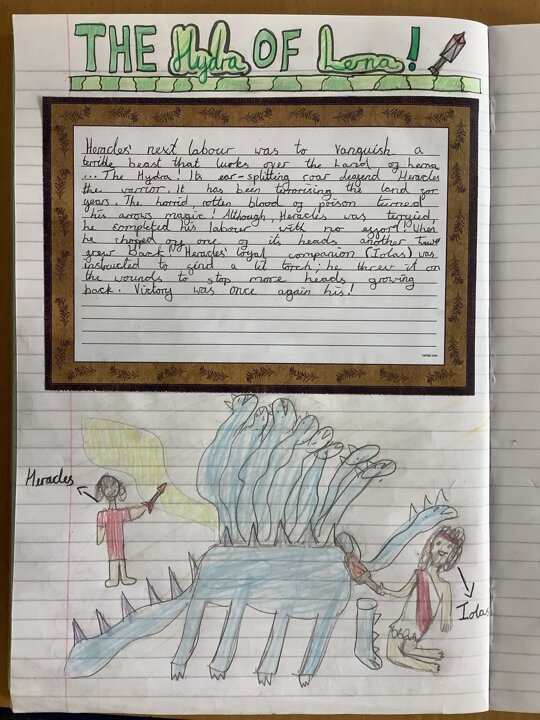 THE Hydra OF Lerna!
Heracles' next labour was to vanquish a
terrible beast that lurks over the Land of Lerna
...The Hydra! Its ear-splitting roar Heracles
the warrior. It has been terrorising the land for
years. The horrid, rotten blood of poison turned
his arrows magic! Although, Heracles was terryied,
he completed his labour with no effort! When
he choped off one of its heads another
grew back! Heracles' loyal companion (Iolas) was
instructed to find a lit torch; he threw it on
the wounds to stop more heads growing
back. Victory was once again his!
Heracles
Iolas